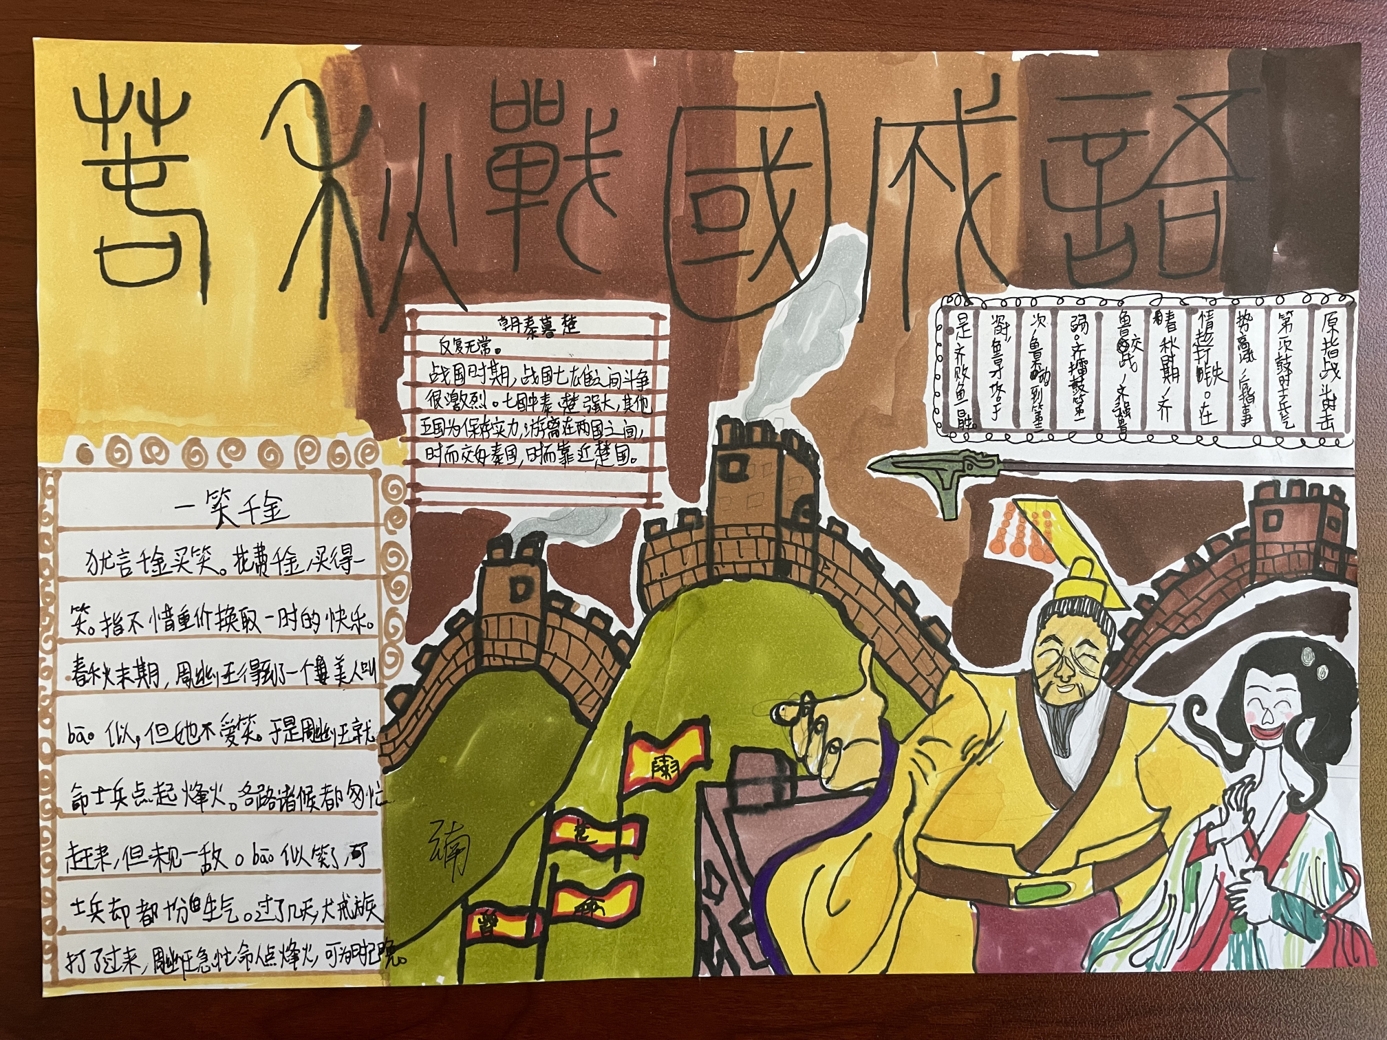 春秋戰國成語
一笑千金
犹言千金买笑。花费千金,买得一
笑。指不惜重价换取一时的快乐。
春秋末期,周幽王得到了一个美人叫
bāo 似,但她不爱笑。于是周幽王就
命士兵点起烽火。各路诸候都匆忙
赶来,但未见一敌。bāo 似笑了,可
士兵却都十分生气。过了几天,犬戎族
打了过来,周幽王急忙命人点烽火,可为时已晚。
朝秦暮楚
反复无常。
战国时期,战国七雄之间斗争
很激烈。七国中秦、楚强大,其他
五国为保存实力,游离在两国之间,
时而交好秦国,时而靠近楚国。
原指战斗时击
第一次鼓时士气
势高涨,后指事
情趁打铁。在
春秋期,齐
鲁交战,齐强鲁
弱。齐擂鼓第一
次,鲁
鲁才
是齐败鲁胜